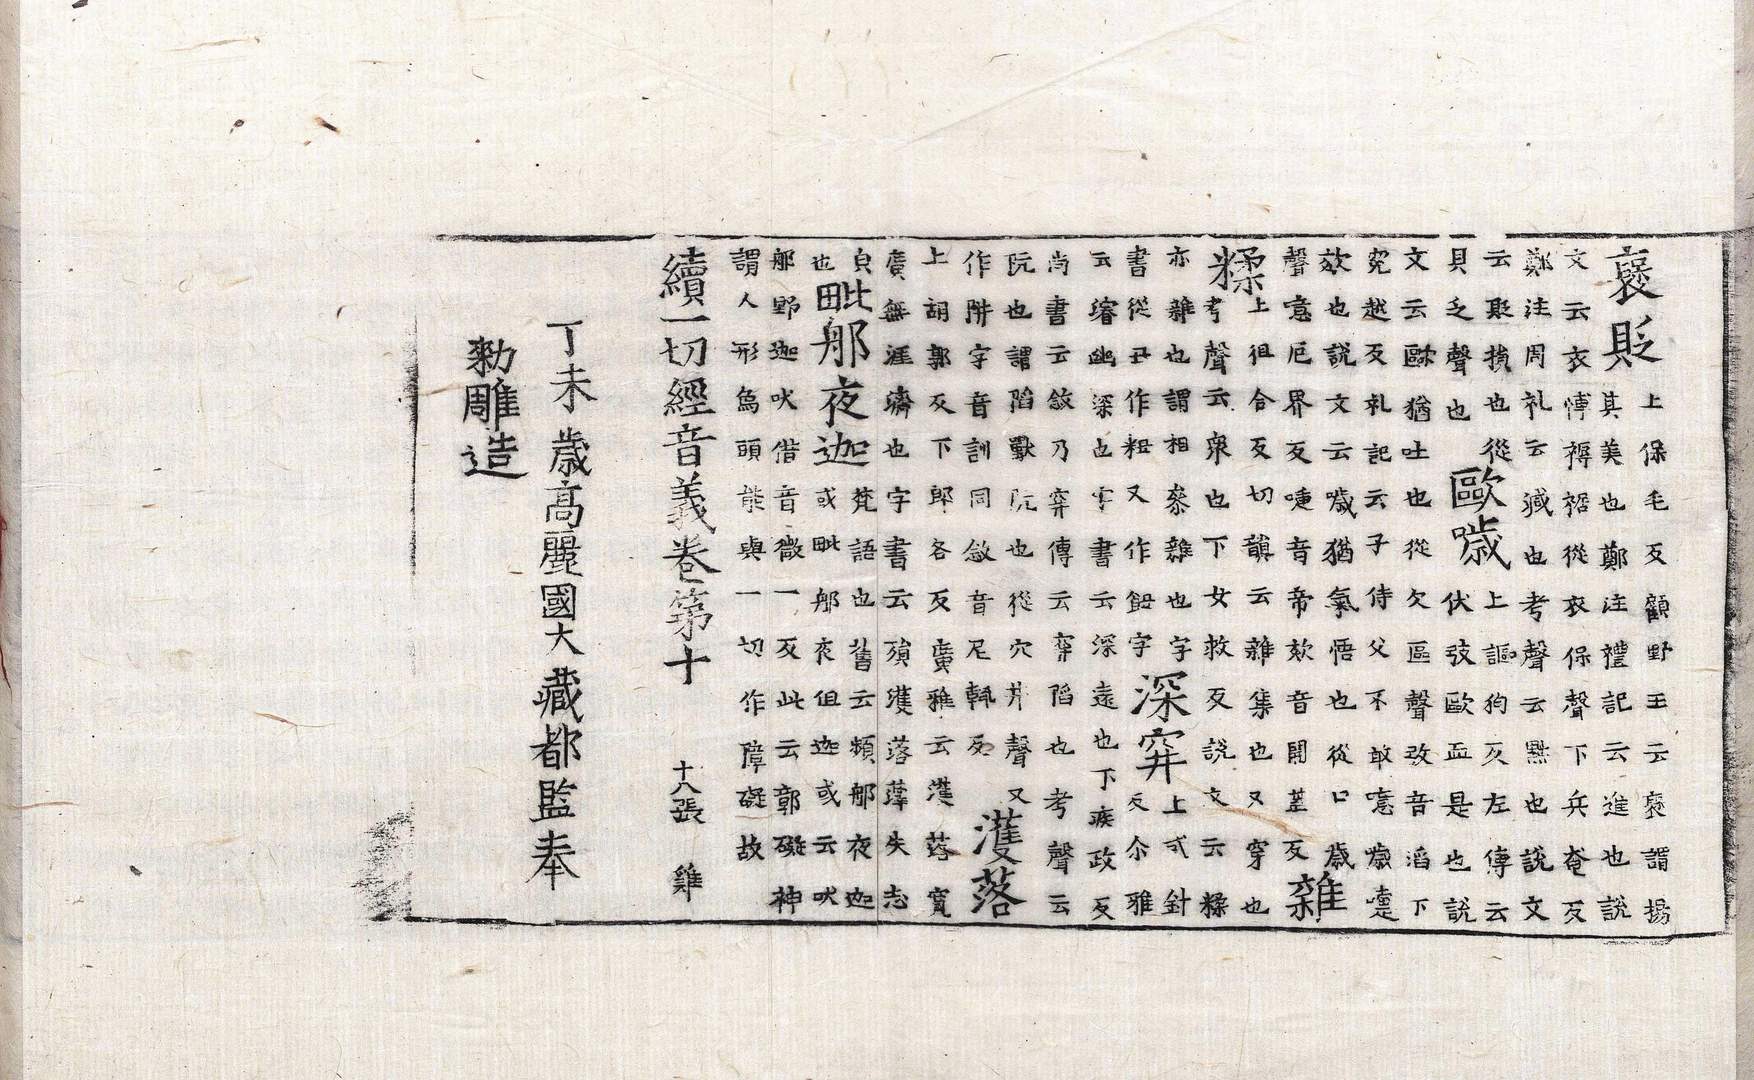 褒貶上保毛反顧野王云褒謂揚
其美也鄭注禮記云進也說
文云衣慱褥裾從衣保聲下兵奄反
鄭注周礼云減也考聲云㸃也說文
云貶損也從
貝乏聲也
歐噦上謳狗反左傳云
伏弢歐血是也說
文云歐猶吐也從欠區聲弢音滔下
究越反礼記云子侍父不敢噫噦嚏
欬也說文云噦猶氣悟也從口歲
聲噫厄界反嚏音帝欬音開盖反
雜
糅上徂合反切韻云雜集也又穿也
考聲云衆也下女救反說文云糅
亦雜也謂相叅雜也字
書從丑作粈又作䬔字
深穽上式針
反尒雅
云濬幽深也字書云深遠也下疾政反
尚書云敜乃穽傳云穽陷也考聲云
阬也謂陷獸阬也從穴井聲又
作阱字音訓同敜音尼輒反
濩落
上胡郭反下郎各反廣雅云濩落寬
廣無涯濟也字書云殞濩落蘀失志
皃
也
毗那夜迦梵語也舊云頻那夜迦
或毗那夜伹迦或云吠
那野迦吠借音微一反此云鄣礙神
謂人形為頭能與一切作障礙故
續一切經音義卷第十 十八張 雞
丁未歲高麗國大藏都監奉
勑雕造